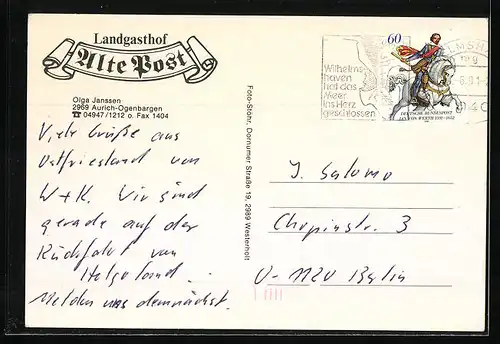 Landgasthof
Alte Post
Olga Janssen
2969 Aurich-Ogenbargen
☎ 04947/1212 o. Fax 1404
Viele Grüße aus
Ostfriesland von
W+K. Wir sind
gerade auf der
Rückfahrt von
Helgoland.
Melden uns demnächst.
Foto-Stöhr, Dornumer Straße 19, 2989 Westerholt
Wilhelms-
haven
hat das
Meer
ins Herz
geschlossen
60
DEUTSCHE BUNDESPOST
JAN VON WERTH 1591-1652
J. Salomo
Chopinstr. 3
O-1120 Berlin